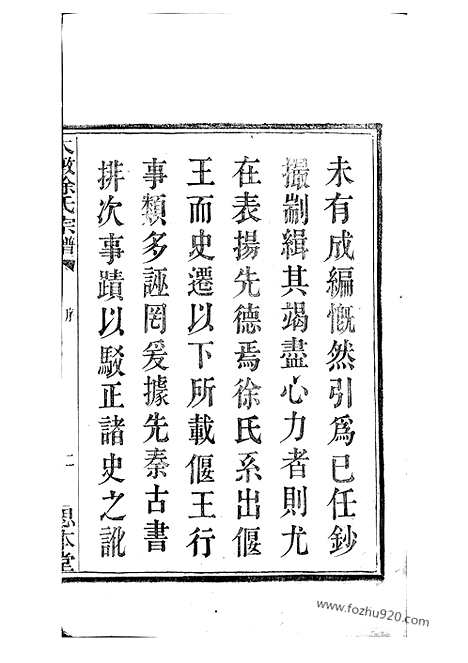 未有成編慨然引爲已任鈔
撮劀緝其竭盡心力者則尤
在表揚先德焉徐氏系出偃
王而史遷以下所載偃王行
事類多誣罔爰據先秦古書
排次事蹟以駁正諸史之訛
徐氏宗譜
序
二
思本堂
www.fozhu920.com